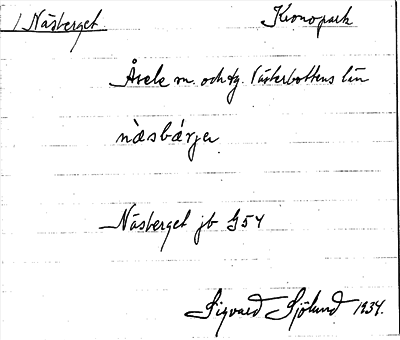 1 Näsberget Kronopark
Åsele sn. och tg. Västerbottens län
nä̀sbǽrjer
Näsberget jb G54
Sigvard Sjölund 1934.